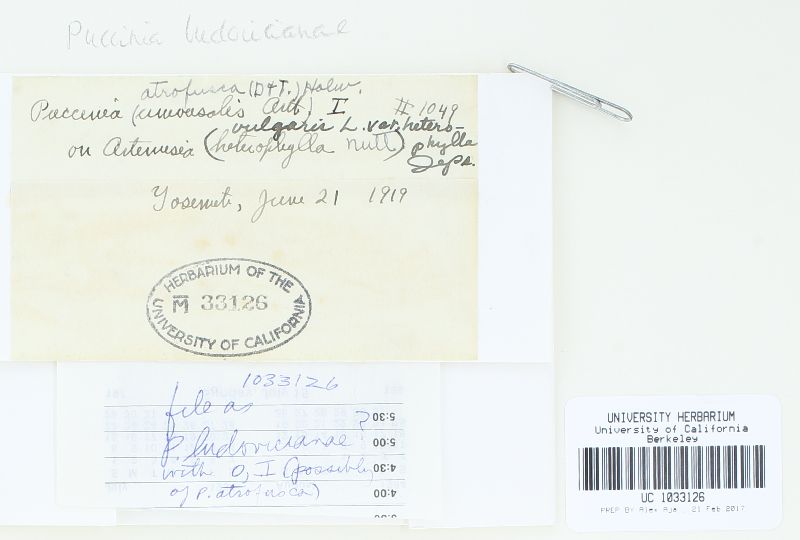 Puccinia ludovicianae
atrofusca (D+T.) Holw.
Puccinia (universalis Arth) I # 1049
vulgaris L. var. hetero-
on Artemisia (heterophylla Nutt) phylla
Jeps.
Yosemite, June 21 1919
HERBARIUM OF THE
M 33126
UNIVERSITY OF CALIFORNIA
1033126
file as ?
P. ludovicianae
with O, I (possibly
of P. atrofusca)
5:30
5:00
4:30
4:00
UNIVERSITY HERBARIUM
University of California
Berkeley
UC 1033126
PREP BY Alex 21 Feb 2017